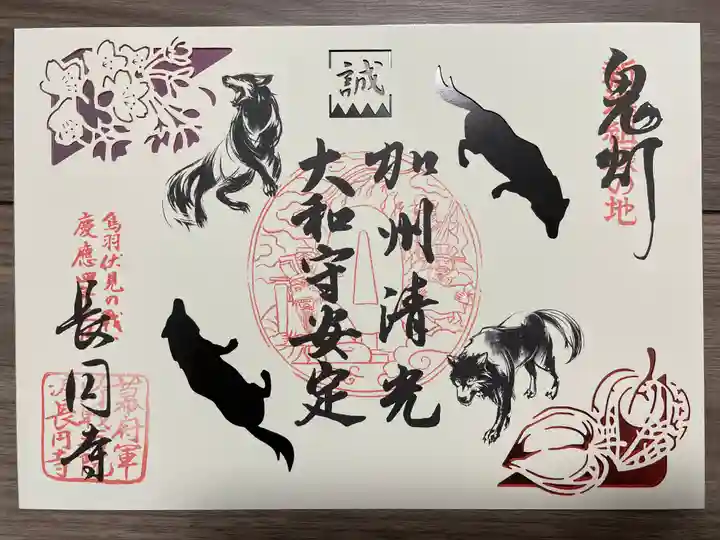 鬼灯
の地
誠
加州清光
大和守安定
鳥羽伏見の戦
慶應四
長円寺
幕府軍
長円寺